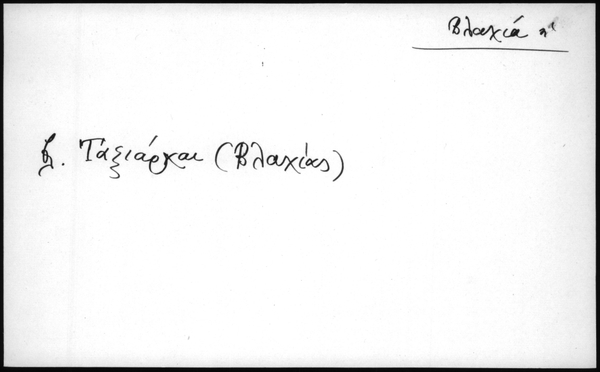 Βλαχιά
βλ. Ταξιάρχαι (Βλαχίας)